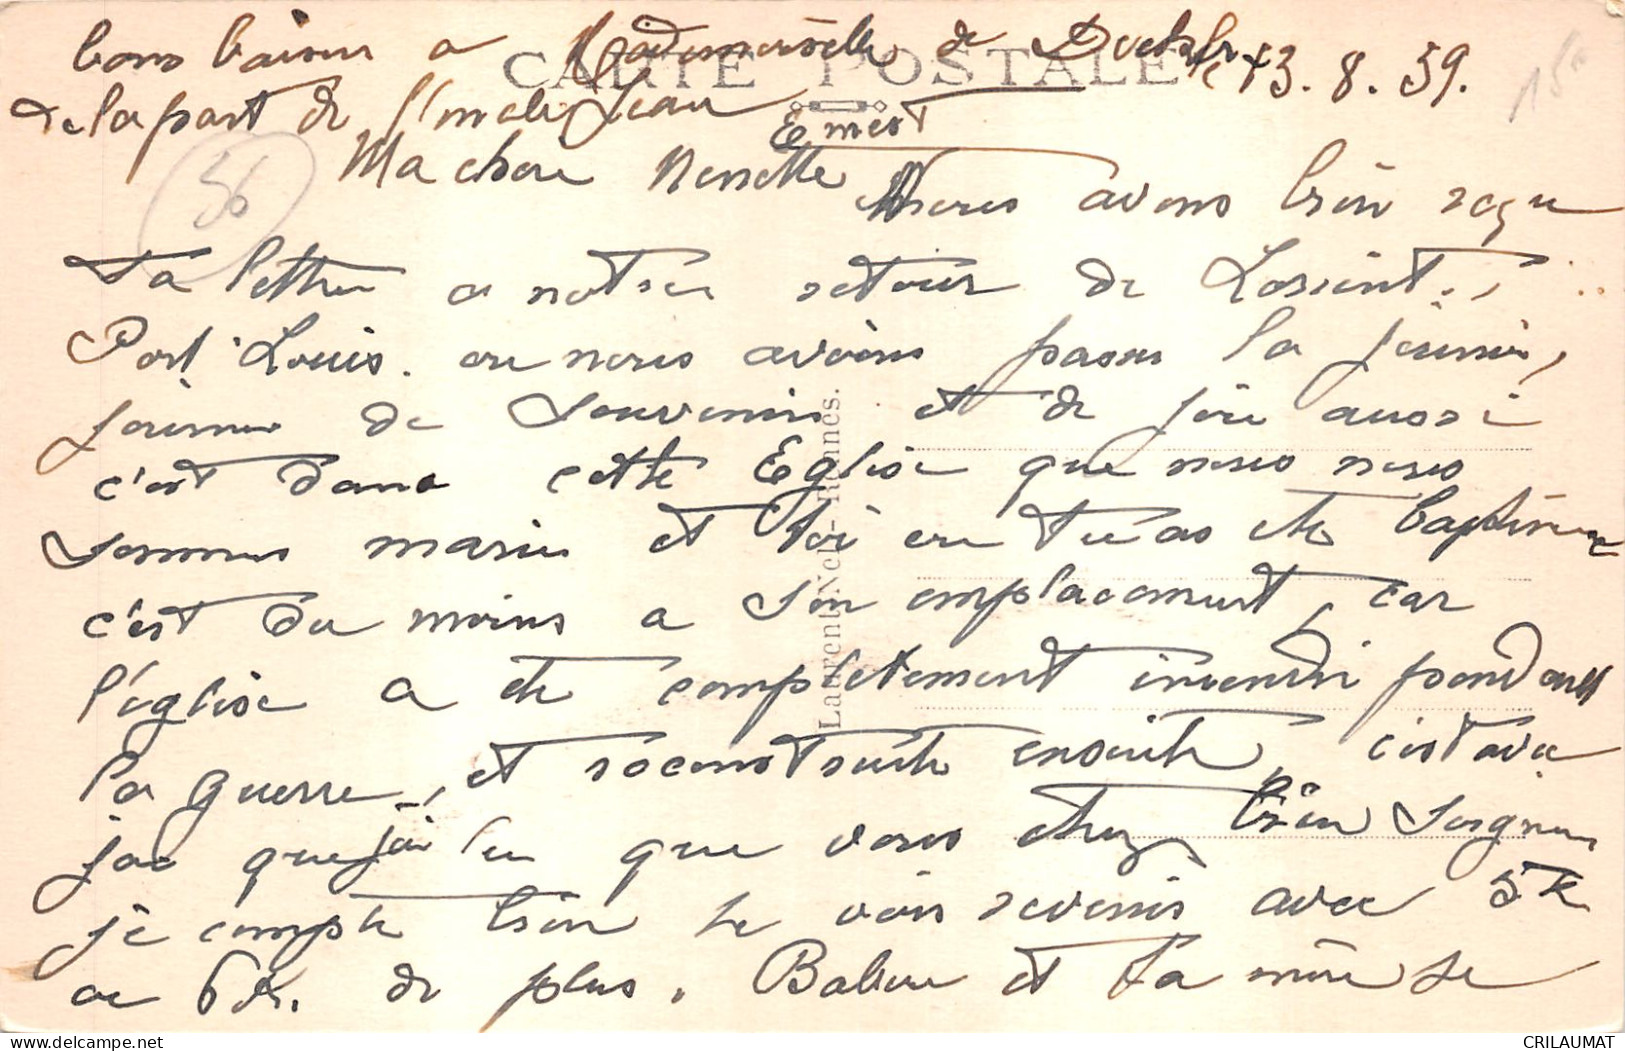 bons baisers a Mademoiselle de 13.8.59.
CARTE POSTALE
de la part de l'oncle Jean
Ernest
Ma chere Nenette Nous avons bien reçu
Ta lettre a notre retour de Lorient.,
Port Louis. ou nous avions passer la journée,
journee de Souvenirs et de joie aussi
c'est dans cette Eglise que nous nous
sommes mariés et Toi ou Tu as ete baptisee
c'est du moins a son emplacement, car
l'église a ete completement incendie pendant
la guerre, et reconstruite ensuite, c'est avec
joie que j'ai lu que vous etiez bien Soigner
je compte bien te voir revenir avec 5 K
ou 6 K. de plus. Babeu et Ta mère se
Laurent-Nel - Rennes.
56
15
delcampe.net
CRILAUMAT